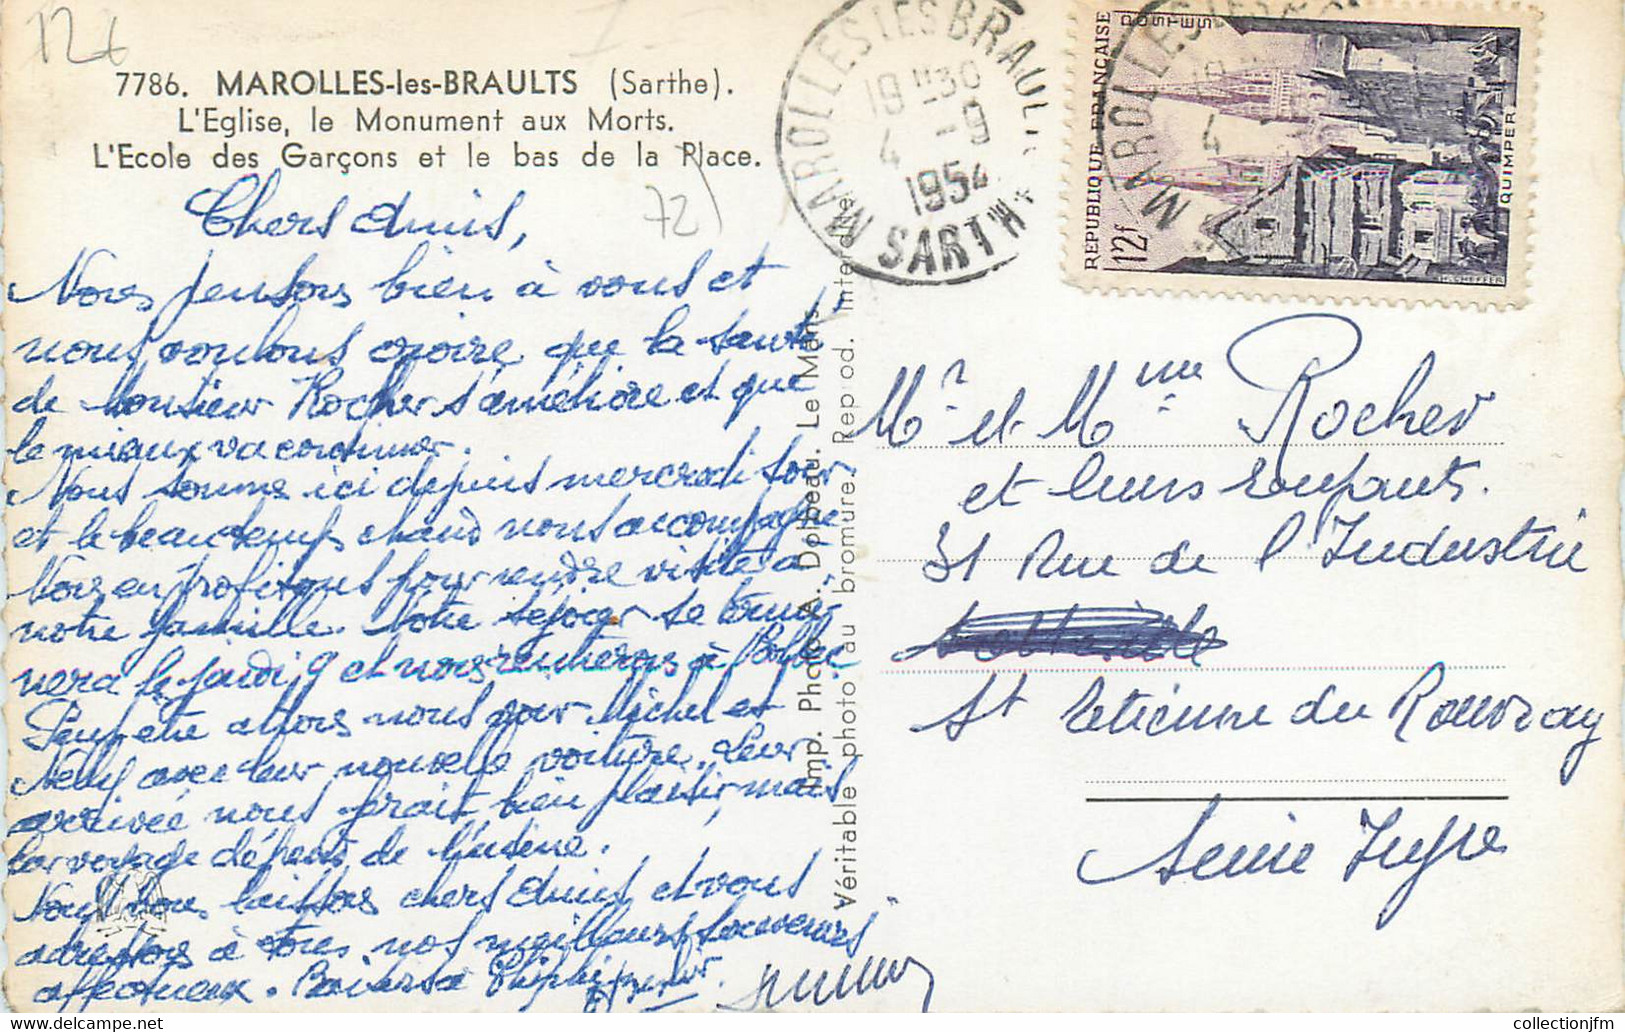 126
7786. MAROLLES-les-BRAULTS (Sarthe).
L'Eglise, le Monument aux Morts.
L'Ecole des Garçons et le bas de la Place.
72
Chers Amis,
Nous pensons bien à vous et
nous voulons croire que la santé
de Monsieur Rocher s'améliore et que
le mieux va continuer.
Nous sommes ici depuis mercredi soir
et le beau temps chaud nous accompagne
Nous en profitons pour rendre visite à
notre famille. Notre séjour se termi
nera le jeudi 9 et nous rentrerons à Bolbec
Peut-être allons nous voir Michel et
avec leur nouvelle voiture. Leur
arrivée nous ferait bien plaisir, mais
leur voyage dépend de l'usine.
Nous vous laissons chers Amis et vous
adressons à tous nos meilleurs souvenirs
affectueux. Baisers à
MAROLLES LES BRAULTS
19H30
4 -9
1954
SARTHE
REPUBLIQUE FRANÇAISE
POSTES
12f
QUIMPER
H. CHEFFER
MAROLLES LES
4
Imp. Photo A. Dolbeau. Le Mans
Véritable photo au bromure. Reprod. Interdite
Mr et Mme Rocher
et leurs Enfants.
31 Rue de l'Industrie
St Etienne du Rouvray
Seine Infre
collectionjfm